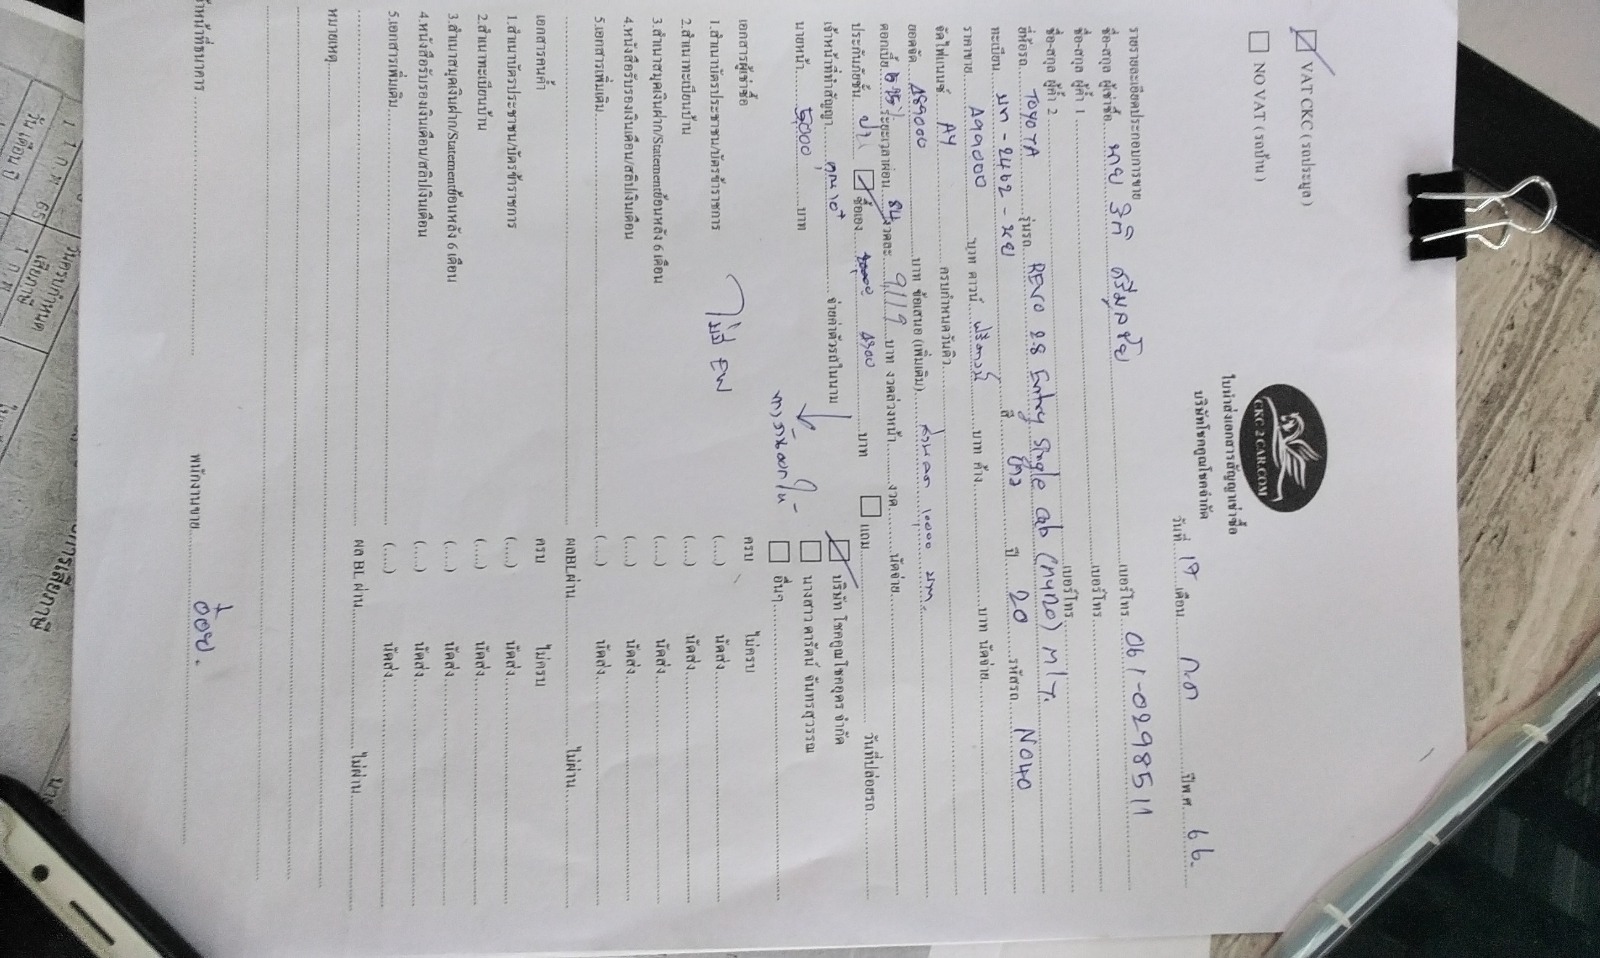 VAT CKC ( รถประมูล )
NO VAT ( รถบ้าน )
CKC 2 CAR.COM
ใบนำส่งเอกสารสัญญาเช่าซื้อ
บริษัทโชคคูณโชคจำกัด
วันที่ 19 เดือน กค ปีพ.ศ. 66.
รายรายละเอียดประกอบการขาย
ชื่อ-สกุล ผู้เช่าซื้อ นาย เบอร์โทร. 061-0298511
ชื่อ-สกุล ผู้ค้ำ 1 เบอร์โทร
ชื่อ-สกุล ผู้ค้ำ 2 เบอร์โทร
ยี่ห้อรถ TOYOTA รุ่นรถ REVO 2.8 Entry Single cab M/T.
ทะเบียน สี ขาว ปี 20 รหัสรถ N040
ราคาขาย 499000 บาท ดาวน์ ฟรีดาวน์ บาท ค้าง บาท นัดจ่าย
จัดไฟแนนซ์ AY ครบกำหนดวันคิว
ยอดจัด 489000 บาท ข้อเสนอ (เพิ่มเติม) ส่วนลด 10,000 บาท.
ดอกเบี้ย ระยะเวลาผ่อน 84 งวดละ 9,119 บาท งวดล่วงหน้า งวด นัดจ่าย
ประกันภัยชั้น ซื้อเอง บาท แถม วันที่ปล่อยรถ
เจ้าหน้าที่ทำสัญญา จ่ายค่าตัวรถในนาม บริษัท โชคคูณโชคคูคร จำกัด
นายหน้า 5,000 บาท นางสาว ดารัตน์ จันทรสุวรรณ
อื่นๆ
ไม่มี EW
เอกสารผู้เช่าซื้อ ครบ ไม่ครบ
1.สำเนาบัตรประชาชน/บัตรข้าราชการ (.....) นัดส่ง
2.สำเนาทะเบียนบ้าน (.....) นัดส่ง
3.สำเนาสมุดเงินฝาก/Statementย้อนหลัง 6 เดือน (.....) นัดส่ง
4.หนังสือรับรองเงินเดือน/สลิปเงินเดือน (.....) นัดส่ง
5.เอกสารเพิ่มเติม (.....) นัดส่ง
ผลBLผ่าน ไม่ผ่าน
เอกสารคนค้ำ ครบ ไม่ครบ
1.สำเนาบัตรประชาชน/บัตรข้าราชการ (.....) นัดส่ง
2.สำเนาทะเบียนบ้าน (.....) นัดส่ง
3.สำเนาสมุดเงินฝาก/Statementย้อนหลัง 6 เดือน (.....) นัดส่ง
4.หนังสือรับรองเงินเดือน/สลิปเงินเดือน (.....) นัดส่ง
5.เอกสารเพิ่มเติม (.....) นัดส่ง
ผล BL ผ่าน ไม่ผ่าน
หมายเหตุ
พนักงานขาย อ้อย.